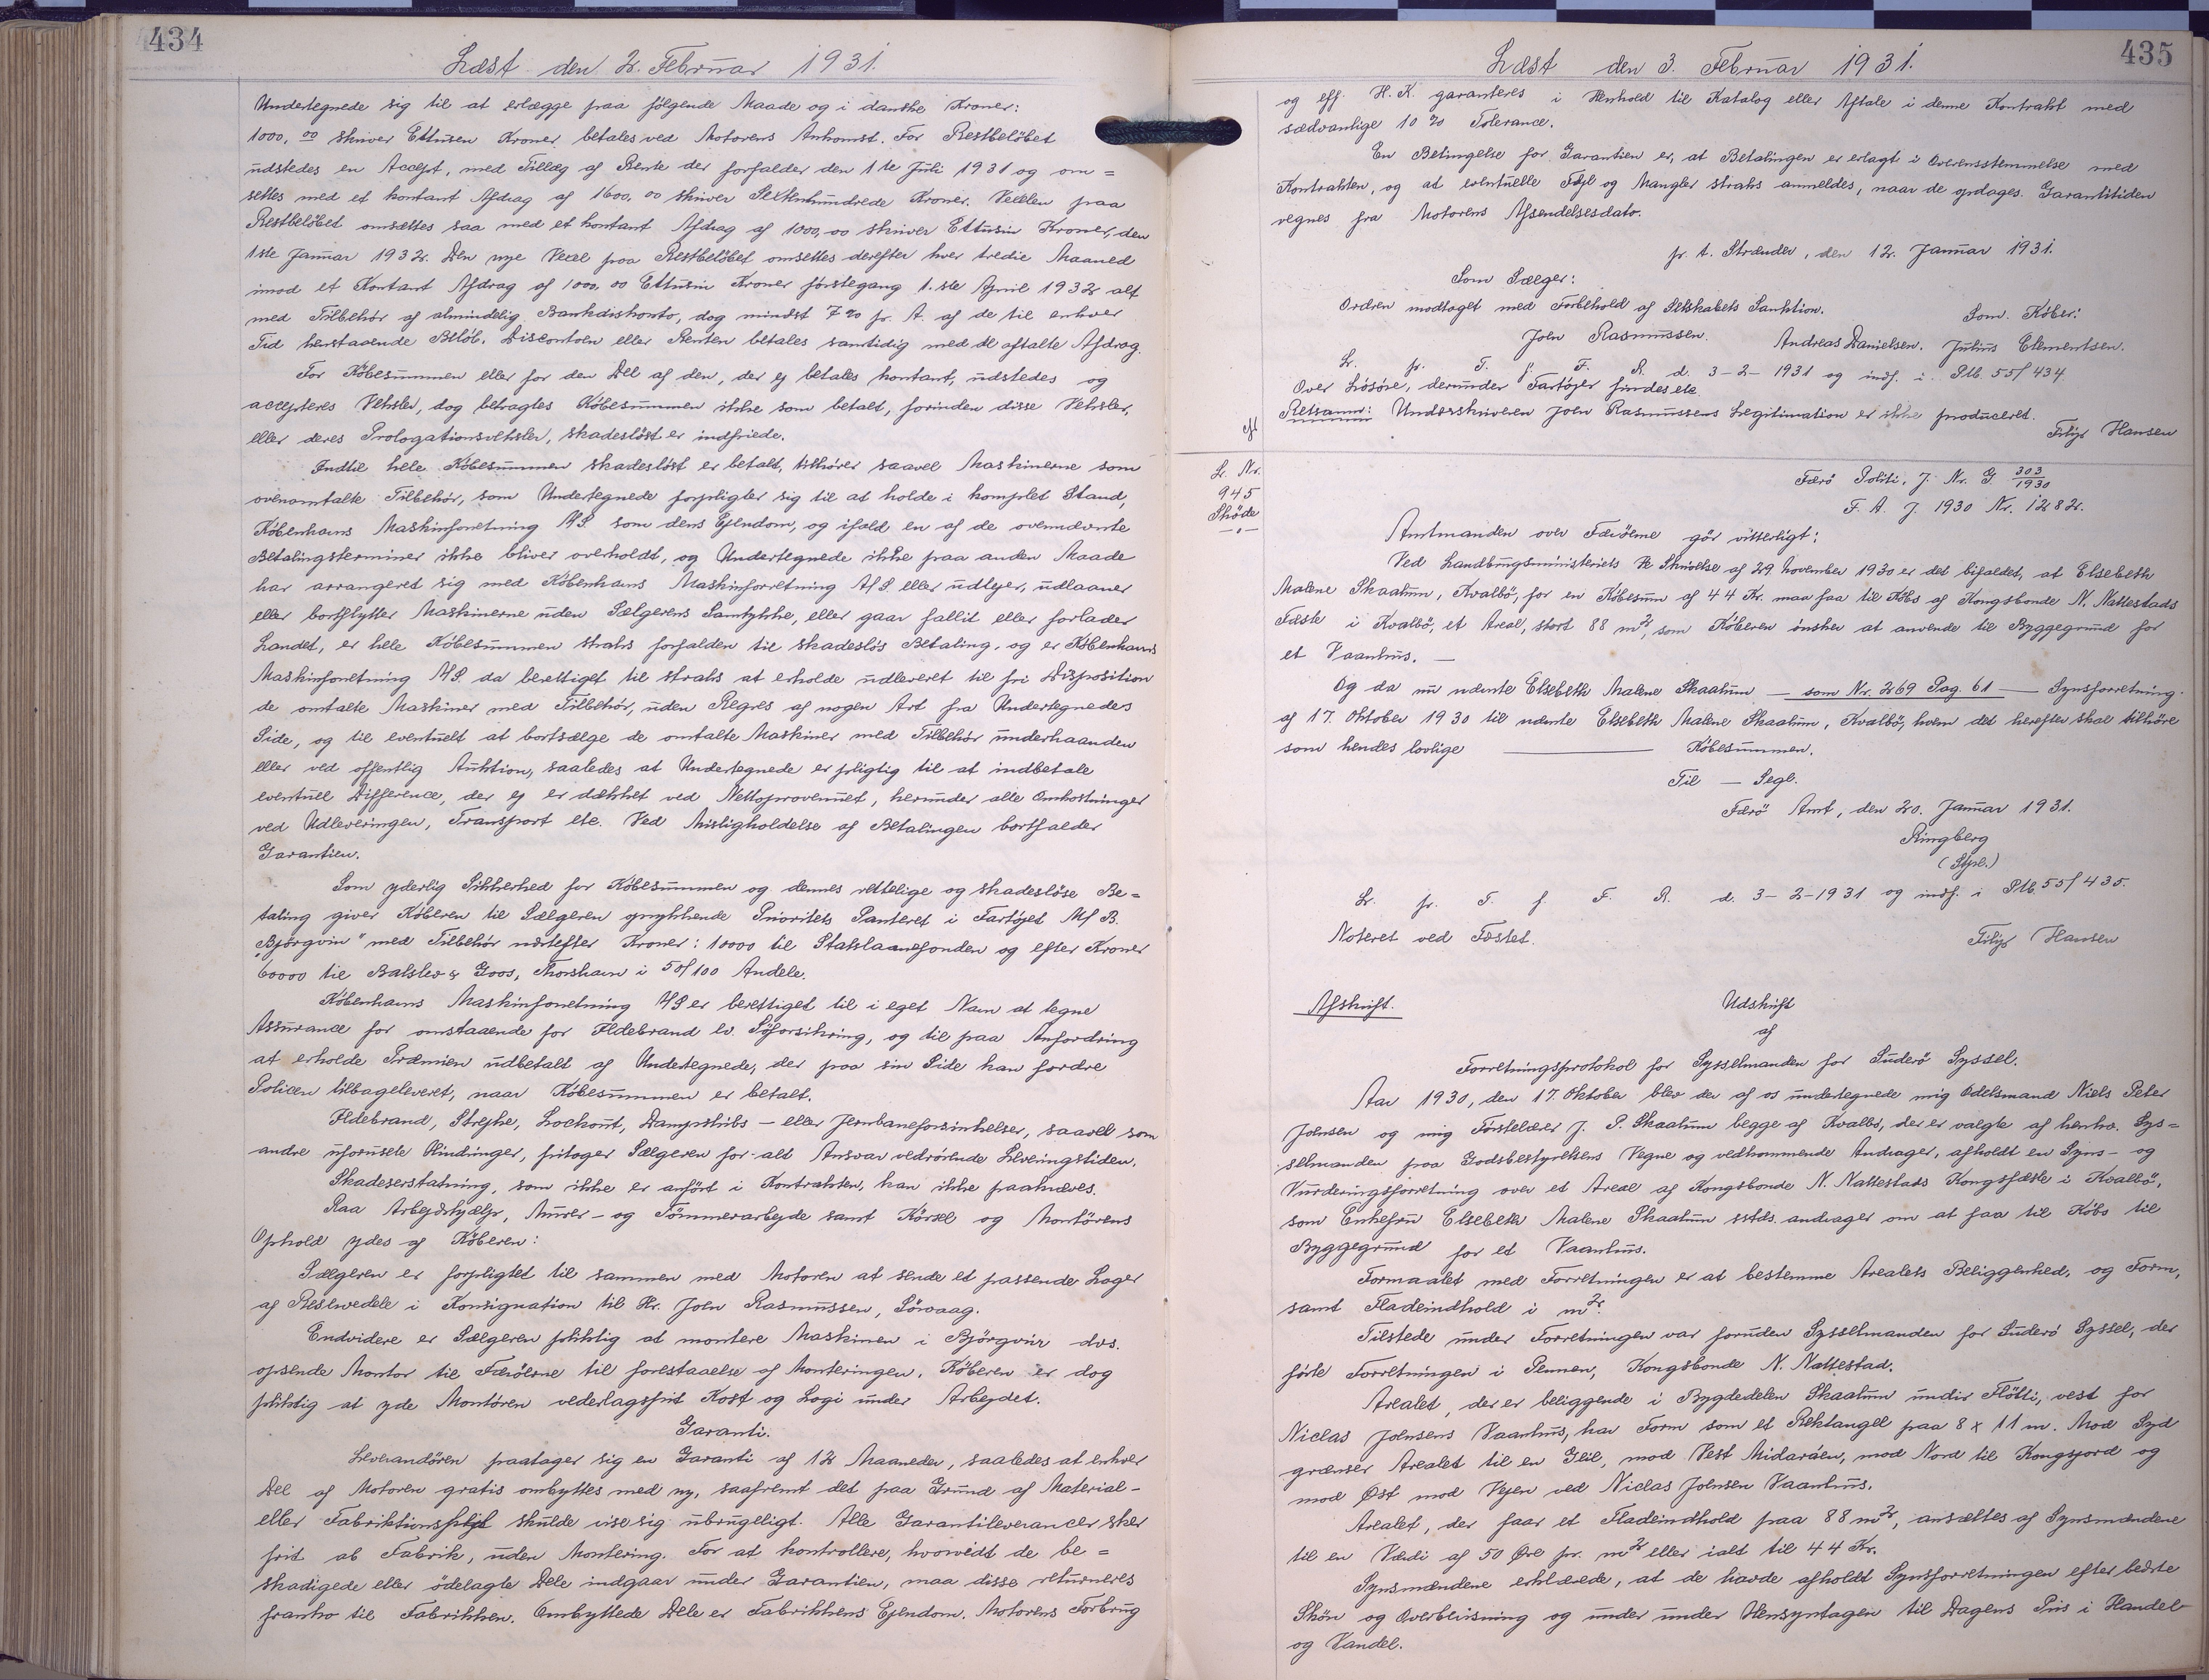 434
Læst den 2. Februar 1931.
Undertegnede sig til at erlægge paa følgende Maade og i danske Kroner:
1000, 00 skriver Ettusen Kroner betales ved Motorens Ankomst. For Restbeløbet
udstedes en Accept, med Tillæg af Rente der forfalder den 1ste Juli 1931 og om=
settes med et kontant Afdrag af 1600, 00 skriver Sekstenhundrede Kroner. Vexlen paa
Restbeløbet omsættes saa med et kontant Afdrag af 1000,00 skriver Ettusin Kroner, den
1ste Januar 1932. Den nye Vexel paa Restbeløbet omsettes derefter hver tredie Maaned
imod et Kontant Afdrag af 1000,00 Ettusin Kroner førstegang 1.ste April 1932 alt
med Tilbehør af almindelig Bankdiskonto, dog mindst 7 % pr. A. af de til enhver
Tid henstaaende Beløb. Discontoen eller Renten betales samtidig med de aftalte Afdrag.
For Købesummen eller for den Del af den, der ej betales kontant, udstedes og
accepteres Veksler, dog betragtes Købesummen ikke som betalt, forinden disse Veksler,
eller deres Prologationsveksler, skadesløst er indfriede.
Indtil hele Købesummen skadesløst er betalt, tilhører saavel Maskinerne som
ovenomtalte Tilbehør, som Undertegnede forpligter sig til at holde i komplet Stand,
Københavns Maskinforretning A/S. som dens Ejendom, og ifald en af de ovennævnte
Betalingsterminer ikke bliver overholdt, og Undertegnede ikke paa anden Maade
har arrangeret sig med Københavns Maskinforretning A/S. eller udlejer, udlaaner
eller bortflytter Maskinerne uden Sælgerens Samtykke, eller gaar fallit eller forlader
Landet, er hele Købesummen straks forfalden til skadesløs Betaling, og er Københavns
Maskinforretning A/S. da berettiget til straks at erholde udleveret til fri Disposition
de omtalte Maskiner med Tilbehør, uden Regres af nogen Art fra Undertegnedes
Side, og til eventuelt at bortsælge de omtalte Maskiner med Tilbehør underhaanden
eller ved offentlig Auktion, saaledes at Undertegnede er pligtig til at indbetale
eventuel Difference, der ej er dækket ved Nettoprovenuet, herunder alle Omkostninger
ved Udleveringen, Transport etc. Ved Misligholdelse af Betalingen bortfalder
Garantien.
Som yderlig Sikkerhed for Købesummen og dennes rettelige og skadesløse Be=
taling giver Køberen til Sælgeren yrykkende Prioritets Panteret i Fartøjet M/B.
"Bjørgvin" med Tilbehør næstefter Kroner: 10000 til Statslaanefonden og efter Kroner
60000 til Balslev & Goos, Thorshavn i 50/100 Andele.
Københavns Maskinforretning A/S er berettiget til i eget Navn at tegne
Assurance for omstaaende for Ildebrand ev. Søforsikring, og til paa Anfordring
at erholde Præmien udbetalt af Undertegnede, der paa sin Side kan fordre
Policen tilbageleveret, naar Købesummen er betalt.
Ildebrand, Strejke, Lockout, Dampskibs- eller Jernbaneforsinkelser, saavel som
andre uforusete Hindringer, fritager Sælgeren for alt Ansvar vedrørende Leveringstiden.
Skadeserstatning, som ikke er anført i Kontrakten, kan ikke paakræves.
Raa Arbejdshjælp, Murer- og Tømmerarbejde samt Kørsel og Montørens
Ophold ydes af Køberen:
Sælgeren er forpligtet til sammen med Motoren at sende et passende Lager
af Reservedele i Konsignation til Hr. John Rasmussen, Sørvaag.
Endvidere er Sælgeren pliktig at montere Maskinen i Bjørgvin dvs.
opsende Montør til Færøerne til forestaaelse af Monteringen. Køberen er dog
pliktig at yde Montøren vederlagsfrit Kost og Logi under Arbejdet.
Garanti.
Leverandøren paatager sig en Garanti af 12 Maaneder, saaledes at enhver
Del af Motoren gratis ombyttes med ny, saafremt det paa Grund af Material-
eller Fabriktionsfejl skulde vise sig ubrugeligt. Alle Garantileverancer sker
frit ab Fabrik, uden Montering. For at kontrollere, hvorvidt de be=
skadigede eller ødelagte Dele indgaar under Garantien, maa disse returneres
franko til Fabrikken. Ombyttede Dele er Fabrikkens Ejendom. Motorens Forbrug
435
Læst den 3. Februar 1931.
og eff. H.K. garanteres i Henhold til Katalog eller Aftale i denne Kontrakt med
sædvanlige 10 % Tolerance.
En Betingelse for Garantien er, at Betalingen er erlagt i Overensstemmelse med
Kontrakten, og at eventuelle Fejl og Mangler straks anmeldes, naar de opdages. Garantitiden
regnes fra Motorens Afsendelsesdato.
pr. t. Strænder, den 12. Januar 1931.
Som Sælger:
Ordren modtaget med Forbehold af Selskabets Sanktion.
Som Køber:
John Rasmussen. Andreas Danielsen. Julius Clementsen.
Lr. pr. T. f. F. R. d. 3-2-1931 og indf. i Ptb. 55/434.
Over Løsøre, derunder Fartøjer findes etc.
Retsanm: Underskriveren John Rasmussens Legitimation er ikke produceret.
Filip Hansen
Lr. Nr.
945
Skøde
Færø Politi, J. Nr. G. 303/1930
F. A. J. 1930 Nr. 1282.
Amtmanden over Færöerne gör vitterligt:
Ved Landbrugsministeriets Skrivelse af 29 November 1930 er det bifaldet, at Elsebeth
Malene Skaalum, Kvalbö, for en Købesum af 44 Kr. maa faa til Købs af Kongsbonde N. Nattestads
Fæste i Kvalbö, et Areal, stort 88 m², som Køberen ønsker at anvende til Byggegrund for
et Vaanhus. —
Og da nu nævnte Elsebeth Malene Skaalum — som Nr. 269 Pag. 61 — Synsforretning
af 17. Oktober 1930 til nævnte Elsebeth Malene Skaalum, Kvalbö, hvem det herefter skal tilhøre
som hendes lovlige — Købesummen.
Til — Segl.
Færö Amt, den 20. Januar 1931.
Ringberg
(Stpl.)
Lr. pr. T. f. F. R. d. 3-2-1931 og indf. i Ptb. 55/435.
Noteret ved Fæstet.
Filip Hansen
Afskrift.
Udskrift
af
Forretningsprotokol for Sysselmanden for Suderö Syssel.
Aar 1930, den 17. Oktober blev der af os undertegnede mig Odelsmand Niels Peter
Johnsen og mig Førstelærer J. P. Skaalum begge af Kvalbö, der er valgte af henhv. Sys=
selmanden paa Godsbestyrelsens Vegne og vedkommende Andrager, afholdt en Syns- og
Vurderingsforretning over et Areal af Kongsbonde N. Nattestads Kongsfæste i Kvalbö,
som Enkefru Elsebeth Malene Skaalum sstds. andrager om at faa til Købs til
Byggegrund for et Vaanhus.
Formaalet med Forretningen er at bestemme Arealets Beliggenhed, og Form,
samt Fladeindhold i m².
Tilstede under Forretningen var foruden Sysselmanden for Suderö Syssel, der
førte Forretningen i Pennen, Kongsbonde N. Nattestad.
Arealet, der er beliggende i Bygdedelen Skaalum undir Fløtti, vest for
Niclas Johnsens Vaanhus, har Form som et Rektangel paa 8 x 11 m. Mod Syd
grænser Arealet til en Geil, mod Vest Midaráen, mod Nord til Kongsjord og
mod Øst mod Vejen ved Niclas Johnsen Vaanhus.
Arealet, der faar et Fladeindhold paa 88 m², ansættes af Synsmændene
til en Værdi af 50 Øre pr. m² eller ialt til 44 Kr.
Synsmændene erklærede, at de havde afholdt Synsforretningen efter bedste
Skøn og Overbevisning og under under Hensyntagen til Dagens Pris i Handel
og Vandel.